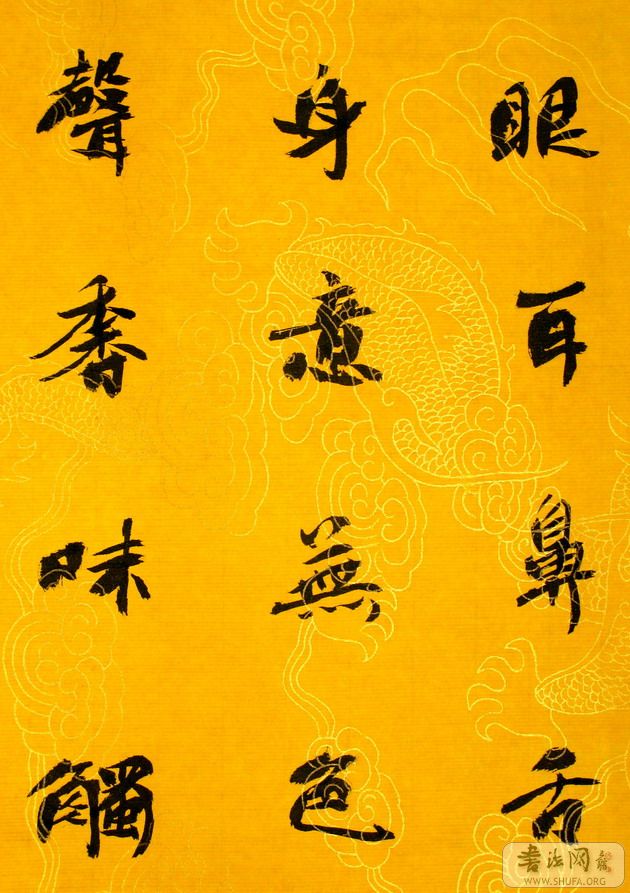 眼耳鼻舌
身意無色
聲香味觸
書法网
WWW.SHUFA.ORG